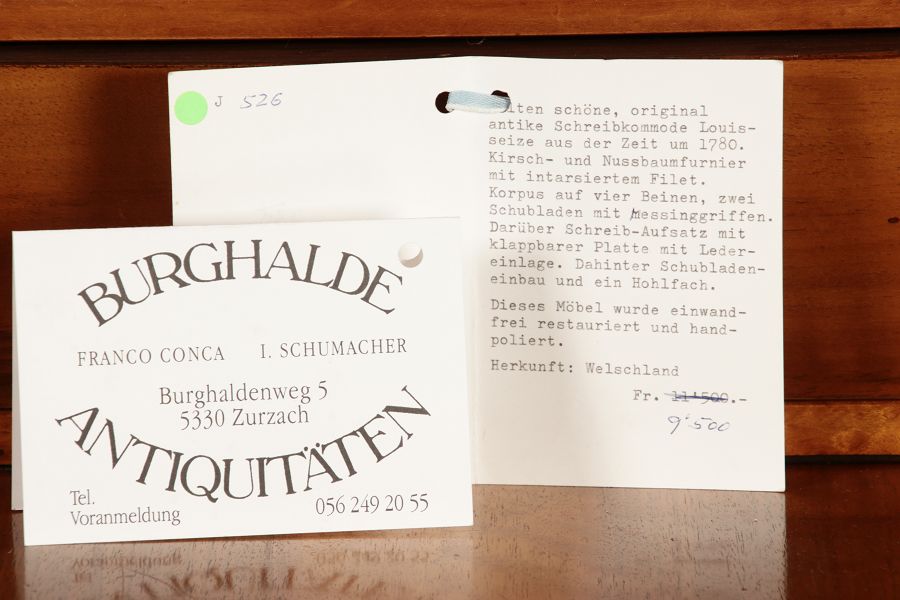 J 526
schöne, original
antike Schreibkommode Louis-
seize aus der Zeit um 1780.
Kirsch- und Nussbaumfurnier
mit intarsiertem Filet.
Korpus auf vier Beinen, zwei
Schubladen mit Messinggriffen.
Darüber Schreib-Aufsatz mit
klappbarer Platte mit Leder-
einlage. Dahinter Schubladen-
einbau und ein Hohlfach.
Dieses Möbel wurde einwand-
frei restauriert und hand-
poliert.
Herkunft: Welschland
Fr. 11'500.-
9'500
BURGHALDE
FRANCO CONCA I. SCHUMACHER
Burghaldenweg 5
5330 Zurzach
ANTIQUITÄTEN
Tel.
Voranmeldung
056 249 20 55